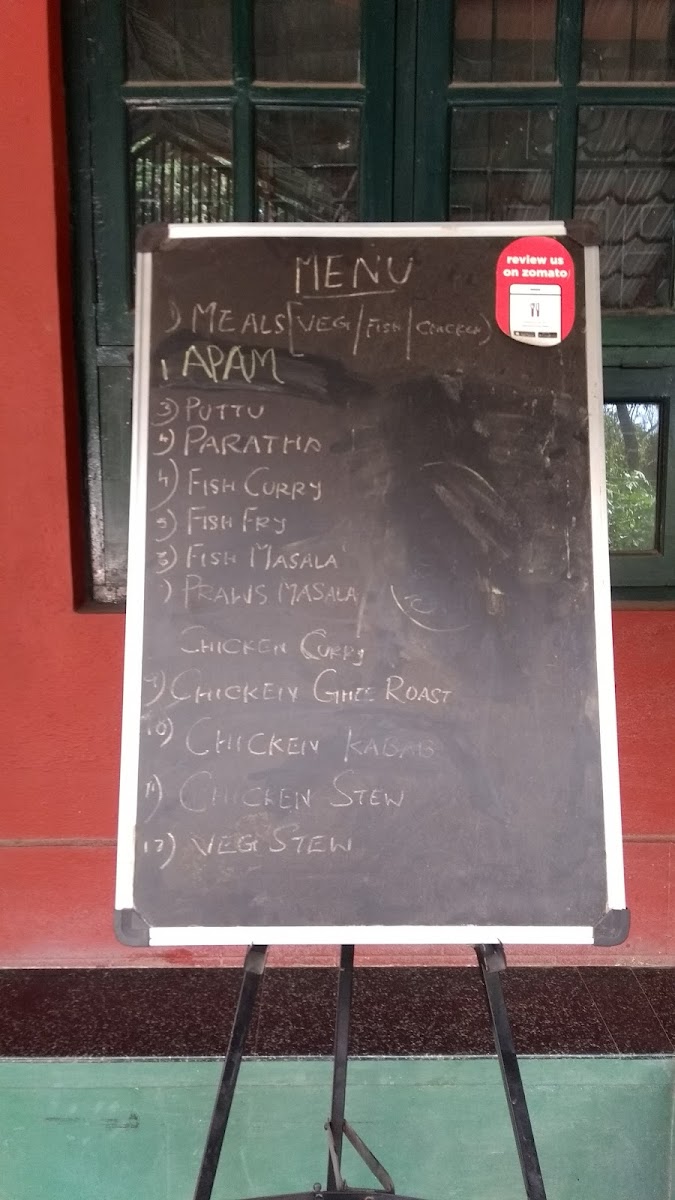 MENU
review us
on zomato
1) MEALS [VEG / FISH / CHICKEN)
1 APAM
3) PUTTU
PARATHA
4) FISH CURRY
5) FISH FRY
FISH MASALA
) PRAWS MASALA
CHICKEN CURRY
9) CHICKEN GHEE ROAST
10) CHICKEN KABAB
11) CHICKEN STEW
12) VEG STEW